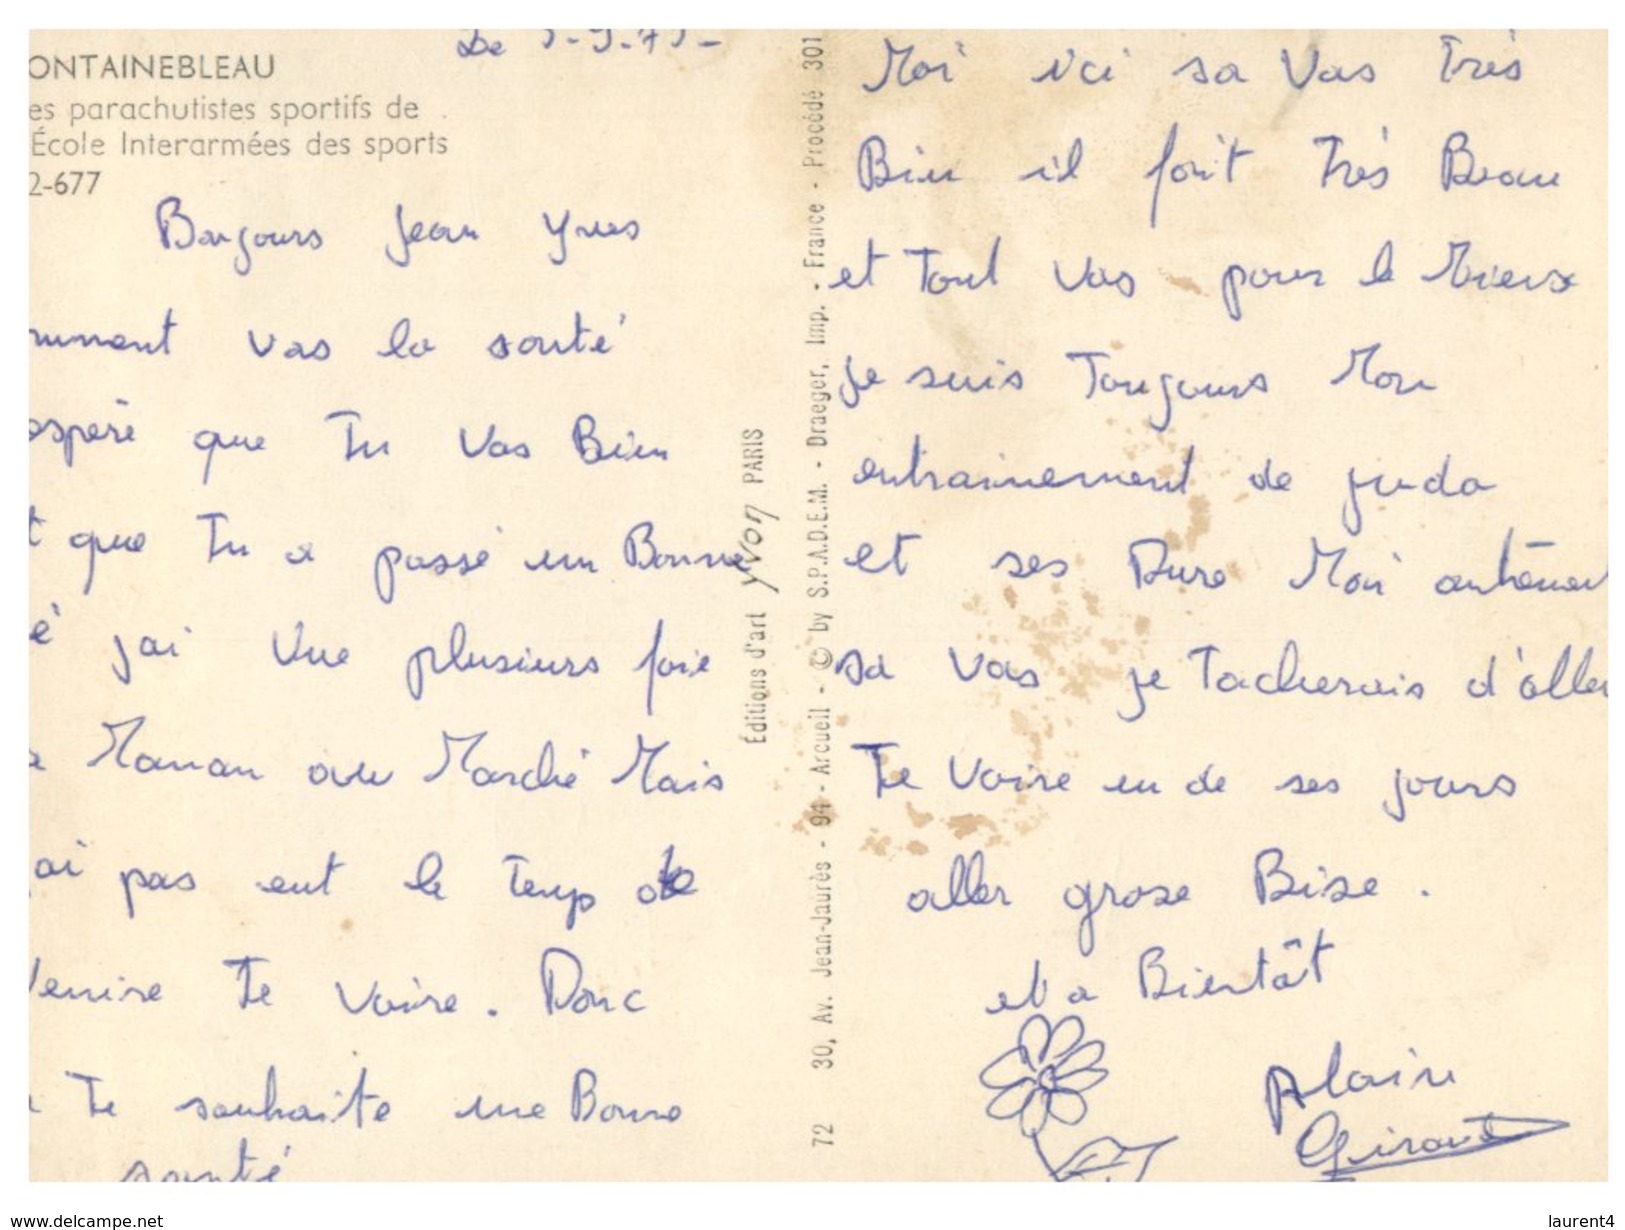 De 5-9-75-
ONTAINEBLEAU
es parachutistes sportifs de
École Interarmées des sports
2-677
Bonjours Jean Yves
mment vas la santé
espère que Tu Vas Bien
t que Tu a passé un Bonne
é jai Vue plusieurs foie
a Maman au Marché Mais
jai pas eut le Temp de
Venire Te Voire. Donc
Te souhaite une Bonne
santé
Éditions d'art yvon PARIS
72 30, Av. Jean-Jaurès - 94 - Arcueil - © by S.P.A.D.E.M. - Draeger, Imp. - France - Procédé 301
Moi ici sa Vas Très
Bien il fait Très Beau
et Tout Vas pour le Mieux
je suis Toujours Mon
entrainement de judo
et ses Dure Moi
sa Vas je Tacherais d'aller
Te Voire un de ses jours
aller grose Bise.
et a Bientât
Alain
Giraud
www.delcampe.net
laurent4